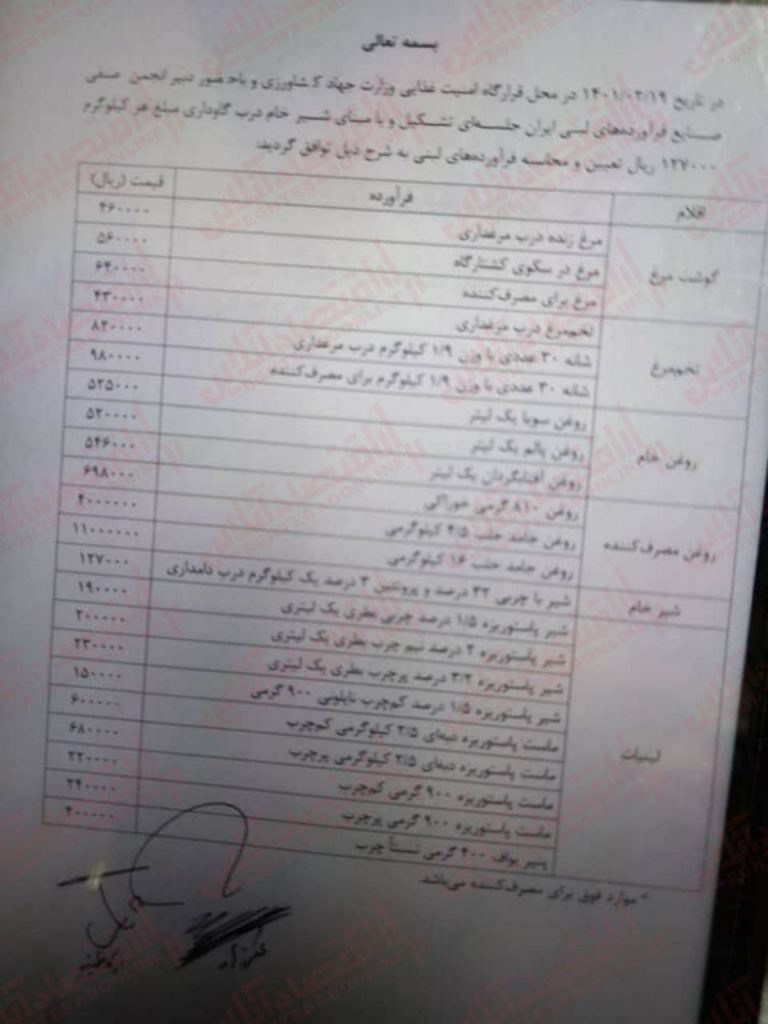 بسمه تعالی
در تاریخ ۱۴۰۱/۰۲/۱۹ در محل قرارگاه امنیت غذایی وزارت جهاد کشاورزی و با حضور دبیر انجمن صنفی
صنایع فرآورده‌های لبنی ایران جلسه‌ای تشکیل و با مبنای شیر خام درب گاوداری مبلغ هر کیلوگرم
۱۲۷۰۰۰ ریال تعیین و محاسبه فرآورده‌های لبنی به شرح ذیل توافق گردید:
اقلام فرآورده قیمت (ریال)
گوشت مرغ مرغ زنده درب مرغداری ۴۶۰۰۰۰
مرغ در سکوی کشتارگاه ۵۶۰۰۰۰
مرغ برای مصرف‌کننده ۶۴۰۰۰۰
تخم‌مرغ تخم‌مرغ درب مرغداری ۴۳۰۰۰۰
شانه ۳۰ عددی با وزن ۱/۹ کیلوگرم درب مرغداری ۸۲۰۰۰۰
شانه ۳۰ عددی با وزن ۱/۹ کیلوگرم برای مصرف‌کننده ۹۸۰۰۰۰
روغن خام روغن سویا یک لیتر ۵۲۵۰۰۰
روغن پالم یک لیتر ۵۲۰۰۰۰
روغن آفتابگردان یک لیتر ۵۴۶۰۰۰
روغن مصرف‌کننده روغن ۸۱۰ گرمی خوراکی ۶۹۸۰۰۰
روغن جامد حلب ۴/۵ کیلوگرمی ۴۰۰۰۰۰۰
روغن جامد حلب ۱۶ کیلوگرمی ۱۱۰۰۰۰۰۰
شیر خام شیر با چربی ۳۲ درصد و پروتئین ۳ درصد یک کیلوگرم درب دامداری ۱۲۷۰۰۰
لبنیات شیر پاستوریزه ۱/۵ درصد چربی بطری یک لیتری ۱۹۰۰۰۰
شیر پاستوریزه ۲ درصد نیم چرب بطری یک لیتری ۲۰۰۰۰۰
شیر پاستوریزه ۳/۲ درصد پرچرب بطری یک لیتری ۲۳۰۰۰۰
شیر پاستوریزه ۱/۵ درصد کم‌چرب نایلونی ۹۰۰ گرمی ۱۵۰۰۰۰
ماست پاستوریزه دبه‌ای ۲/۵ کیلوگرمی کم‌چرب ۶۰۰۰۰۰
ماست پاستوریزه دبه‌ای ۲/۵ کیلوگرمی پرچرب ۶۸۰۰۰۰
ماست پاستوریزه ۹۰۰ گرمی کم‌چرب ۲۲۰۰۰۰
ماست پاستوریزه ۹۰۰ گرمی پرچرب ۲۴۰۰۰۰
پنیر یواف ۴۰۰ گرمی نسبتاً چرب ۴۰۰۰۰۰
* موارد فوق برای مصرف‌کننده می‌باشد.
اقتصادآنلاین
EGHTESADONLINE